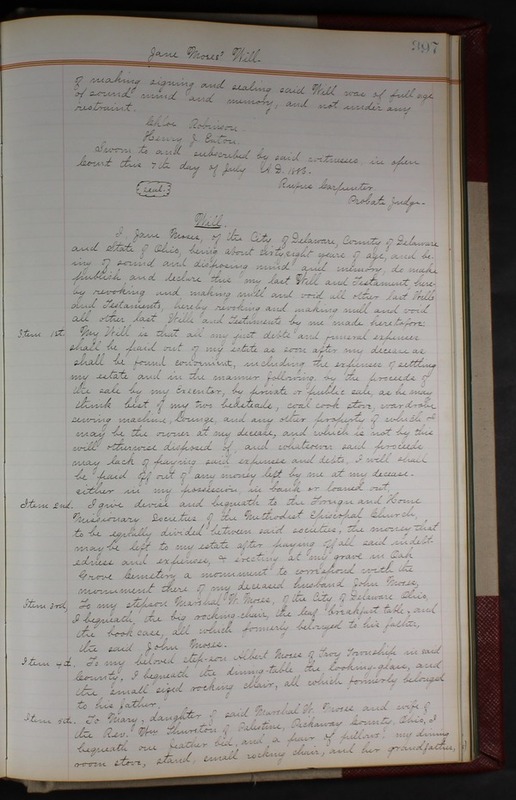 Jane Moses' Will.
397
of making, signing and sealing said Will was of full age
of sound mind and memory, and not under any
restraint.
Chloe Robinson
Henry J. Eaton.
Sworn to and subscribed by said witnesses in open
Court this 7th day of July A.D. 1883.
(seal.)
Rufus Carpenter
Probate Judge
Will.
I, Jane Moses, of the City of Delaware, County of Delaware
and State of Ohio, being about sixty eight years of age, and be-
ing of sound and disposing mind and memory, do make
publish and declare this my last Will and Testament here-
by revoking and making null and void all other last Wills
and Testaments, hereby revoking and making null and void
all other last Wills and Testaments by me made heretofore
Item 1st. My Will is that all my just debts and funeral expenses
shall be paid out of my estate as soon after my decease as
shall be found convenient, including the expenses of settling
my estate and in the manner following, by the proceeds of
the sale by my Executor, by private or public sale, as he may
think best of my two bedsteads, coal cook stove, wardrobe
sewing machine, lounge, and any other property of which I
may be the owner at my decease, and which is not by this
will otherwise disposed of, and whatever said proceeds
may lack of paying said expenses and debts, I will shall
be paid off out of any money left by me at my decease
either in my possession, in bank or loaned out.
Item 2nd. I give devise and bequeath to the Foreign and Home
Missionary Societies of the Methodist Episcopal Church,
to be equally divided between said societies, the money that
may be left to my estate after paying off all said indebt-
edness and expenses, & erecting at my grave in Oak
Grove Cemetery a monument to correspond with the
monument there of my deceased husband John Moses,
Item 3rd, To my stepson Marshal W. Moses, of the City of Delaware Ohio,
I bequeath the big rocking-chair, the leaf breakfast table, and
the book case, all which formerly belonged to his father,
the said John Moses.
Item 4th. To my beloved step-son Albert Moses of Troy Township in said
County, I bequeath the dining-table the looking-glass, and
the small sized rocking chair, all which formerly belonged
to his father.
Item 5th. To Mary, daughter of said Marshal W. Moses and wife of
the Rev. Thurston of Palestine, Pickaway County, Ohio, I
bequeath one feather bed, and a pair of pillows, my dining
room stove, stand, small rocking chair, and her grandfather,